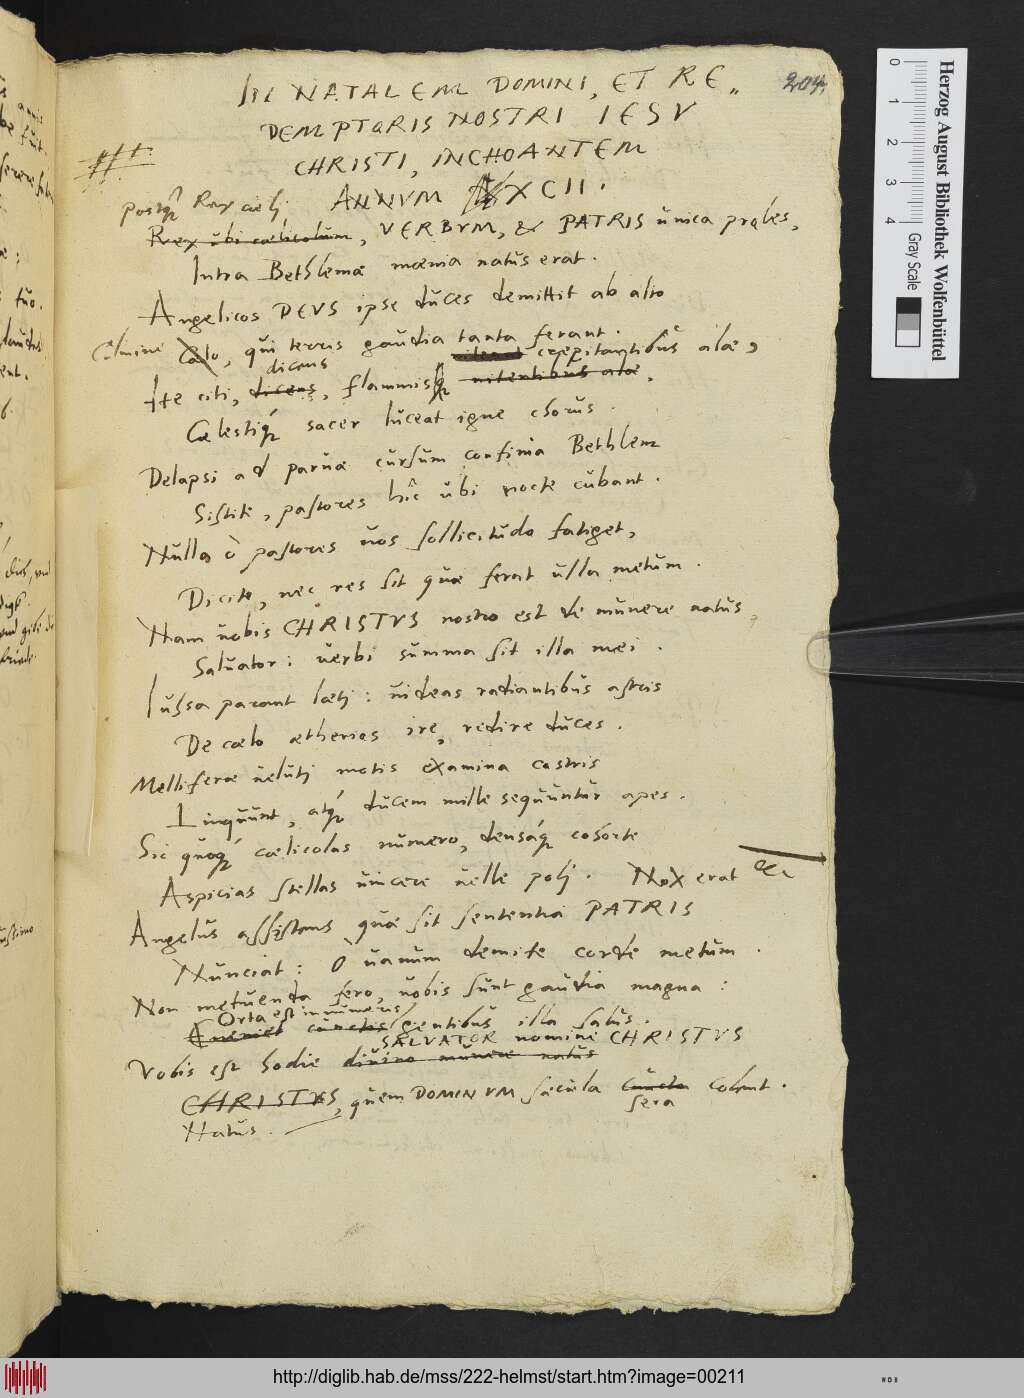 IN NATALEM DOMINI, ET RE„
DEMPTORIS NOSTRI IESV
CHRISTI, INCHOANTEM
ANNVM XCII.
204.
postq́ Rex cœlj,
Rex ubi cœlicolum, VERBVM, & PATRIS ùnica proles,
Intra Bethlemæ mœnia natus erat.
Angelicos DEVS ipse duces demittit ab alto
Culmine Cœlo, qui terris gaudia tanta ferant.
crepitantibus alæ,
dicens
Ite citi, dicens, flammisq́ nitentibus alæ,
Cœlestiq́ sacer luceat igne chorus.
Delapsi ad paruæ cursum confinia Bethlem
Sistite, pastores hîc ubi nocte cubant.
Nulla ò pastores uos sollicitudo fatiget,
Dicite, nec res sit quæ ferat ulla metum.
Nam uobis CHRISTVS nostro est de munere natus,
Saluator: uerbi summa sit illa mei.
Iussa parant lætj: uideas radiantibus astris
De cœlo ætherios ire, redire duces.
Melliferæ uelutj motis examina castris
Linquunt, atq́ ducem mille sequuntur apes.
Sic quoq́ cœlicolas numero, densaq́ cohorte
Aspicias stellas uincere uelle polj. Nox erat &c
Angelus assistens quæ sit sententia PATRIS
Nunciat: O uanum demite corde metum.
Non metuenda fero, uobis sunt gaudia magna:
Orta est innumeris
Eueniet cunctis gentibus illa salus.
SALVATOR nomine CHRISTVS
Vobis est hodie diuino munere natus
CHRISTVS, quem DOMINVM sæcula cuncta colunt.
sera
Natus.
Herzog August Bibliothek Wolfenbüttel
0 1 2 3 4
Gray Scale
http://diglib.hab.de/mss/222-helmst/start.htm?image=00211